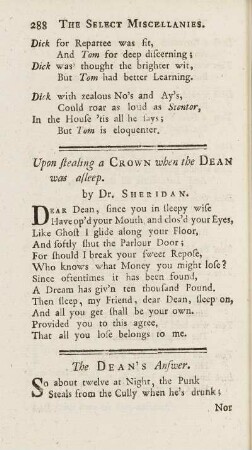 288 THE SELECT MISCELLANIES.
Dick for Repartee was fit,
And Tom for deep discerning;
Dick was thought the brighter wit,
But Tom had better Learning.
Dick with zealous No's and Ay's,
Could roar as loud as Stentor,
In the House 'tis all he says;
But Tom is eloquenter.
Upon stealing a CROWN when the DEAN
was asleep.
by Dr. SHERIDAN.
DEAR Dean, since you in sleepy wise
Have op'd your Mouth and clos'd your Eyes,
Like Ghost I glide along your Floor,
And softly shut the Parlour Door;
For should I break your sweet Repose,
Who knows what Money you might lose?
Since oftentimes it has been found,
A Dream has giv'n ten thousand Pound.
Then sleep, my Friend, dear Dean, sleep on,
And all you get shall be your own.
Provided you to this agree,
That all you lose belongs to me.
The DEAN'S Answer.
SO about twelve at Night, the Punk
Steals from the Cully when he's drunk;
Nor